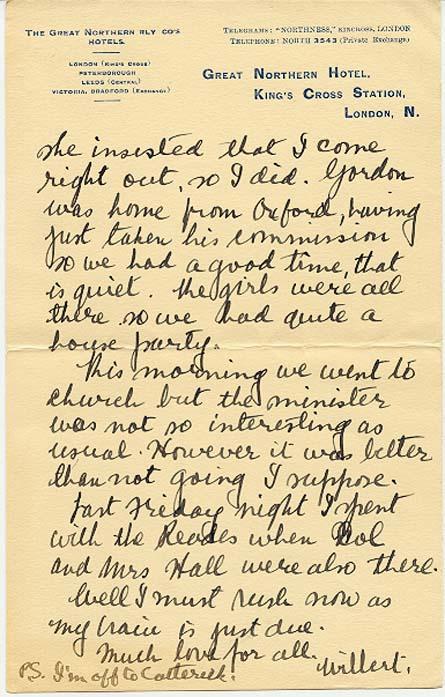 THE GREAT NORTHERN RLY CO'S
HOTELS.
LONDON (KING'S CROSS)
PETERBOROUGH
LEEDS (CENTRAL)
VICTORIA, BRADFORD (EXCHANGE)
TELEGRAMS: "NORTHNESS," KINCROSS, LONDON
TELEPHONE: NORTH 3543 (Private Exchange)
GREAT NORTHERN HOTEL,
KING'S CROSS STATION,
LONDON, N.
she insisted that I come
right out, so I did. Gordon
was home from Oxford, having
just taken his commission
so we had a good time, that
is quiet. The girls were all
there so we had quite a
house party.
This morning we went to
church but the minister
was not so interesting as
usual. However it was better
than not going I suppose.
Last Friday night I spent
with the Reades when Col
and Mrs Hall were also there.
Well I must rush now as
my train is just due.
Much love for all.
Willert.
P.S. I'm off to Catterick.